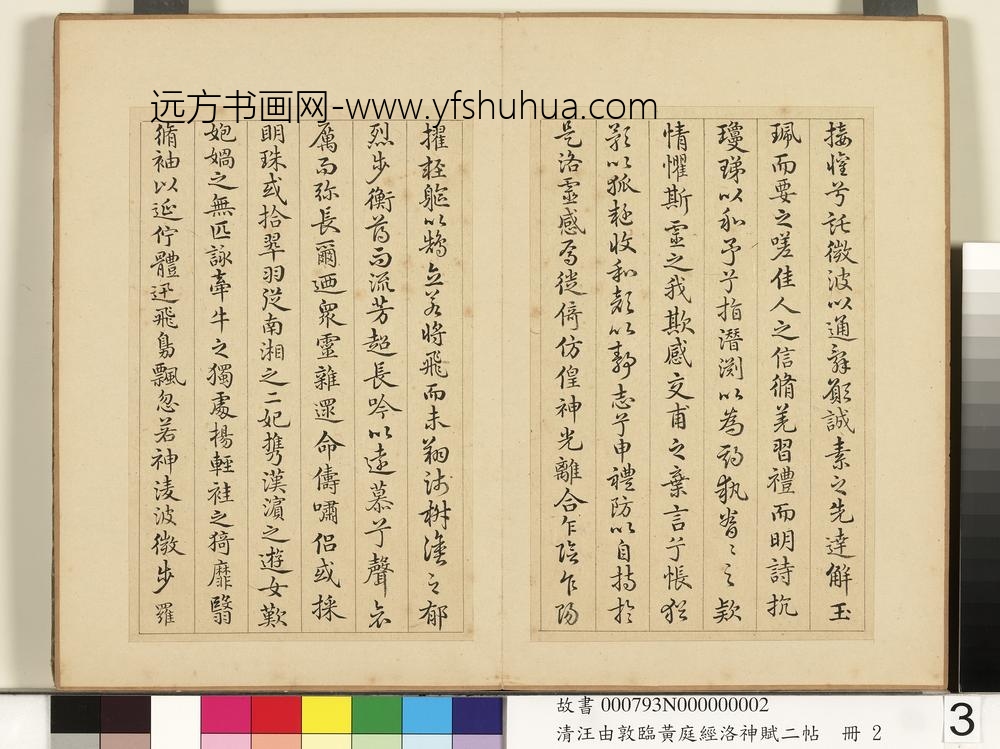 远方书画网-www.yfshuhua.com
接懽兮託微波以通辭願誠素之先達解玉
珮而要之嗟佳人之信脩羌習禮而明詩抗
瓊珶以和予兮指潛淵以為期執眷〻之款
情懼斯靈之我欺感交甫之棄言兮悵猶
豫以狐疑收和顏以靜志兮申禮防以自持於
是洛靈感焉徙倚仿偟神光離合乍陰乍陽
擢輕軀以鶴立若將飛而未翔踐椒塗之郁
烈步衡薄而流芳超長吟以遠慕兮聲哀
厲而弥長爾迺眾靈雜遝命儔嘯侶或採
明珠或拾翠羽從南湘之二妃攜漢濱之遊女歎
媳媧之無匹詠牽牛之獨處揚輕袿之猗靡翳
脩袖以延佇體迅飛鳧飄忽若神淩波微步羅
故書 000793N000000002
清汪由敦臨黃庭經洛神賦二帖 冊 2
3